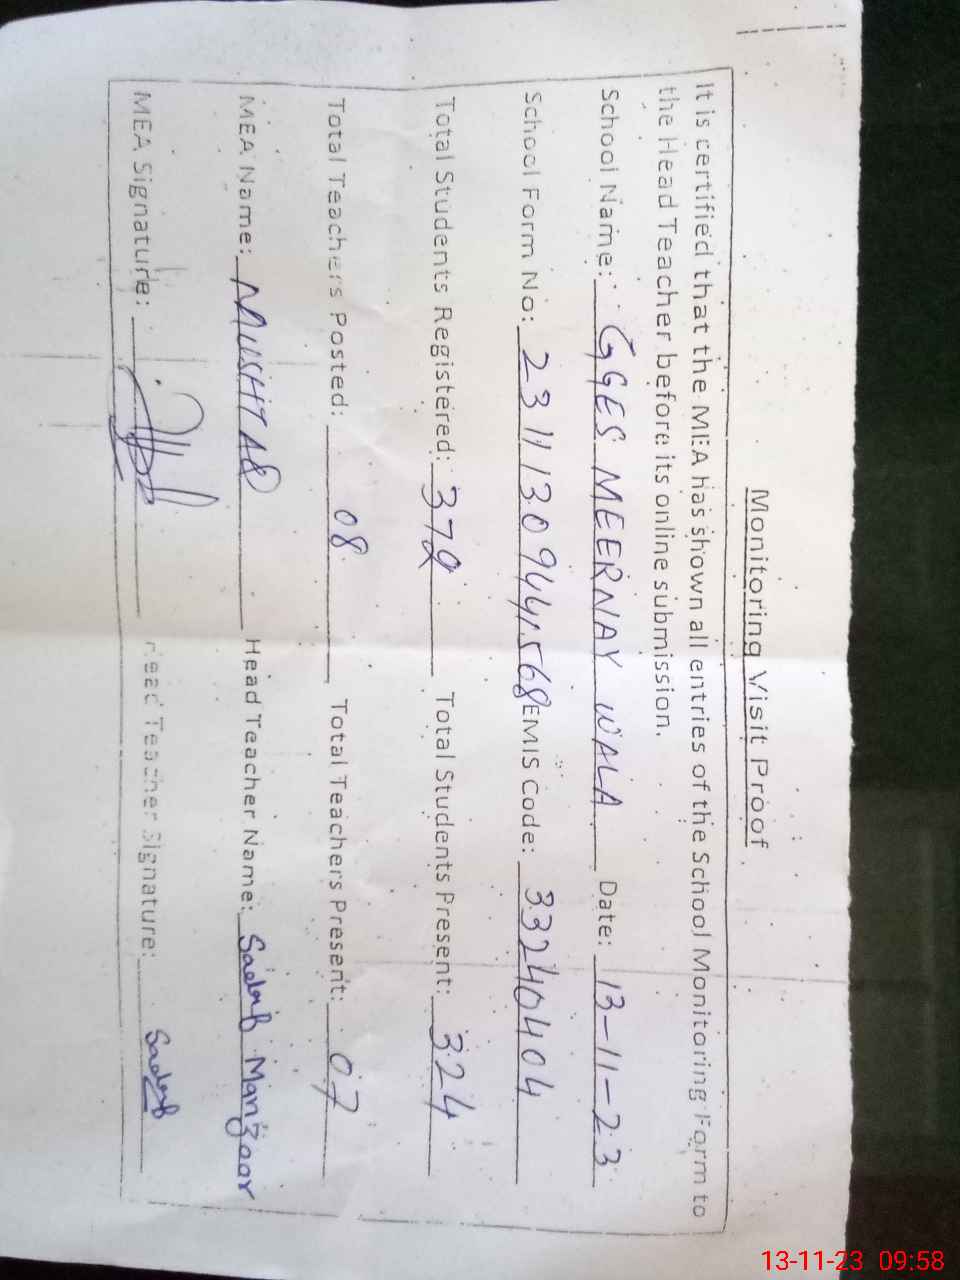 Monitoring Visit Proof
It is certified that the MEA has shown all entries of the School Monitoring Form to
the Head Teacher before its online submission.
School Name: GGES MEERNAY WALA Date: 13-11-23
School Form No: 23111309441568 EMIS Code: 33240404
Total Students Registered: 372 Total Students Present: 324
Total Teachers Posted: 08 Total Teachers Present: 07
MEA Name: MUSHTAQ Head Teacher Name: Sadaf Manzoor
MEA Signature: Head Teacher Signature: Sadaf
13-11-23 09:58